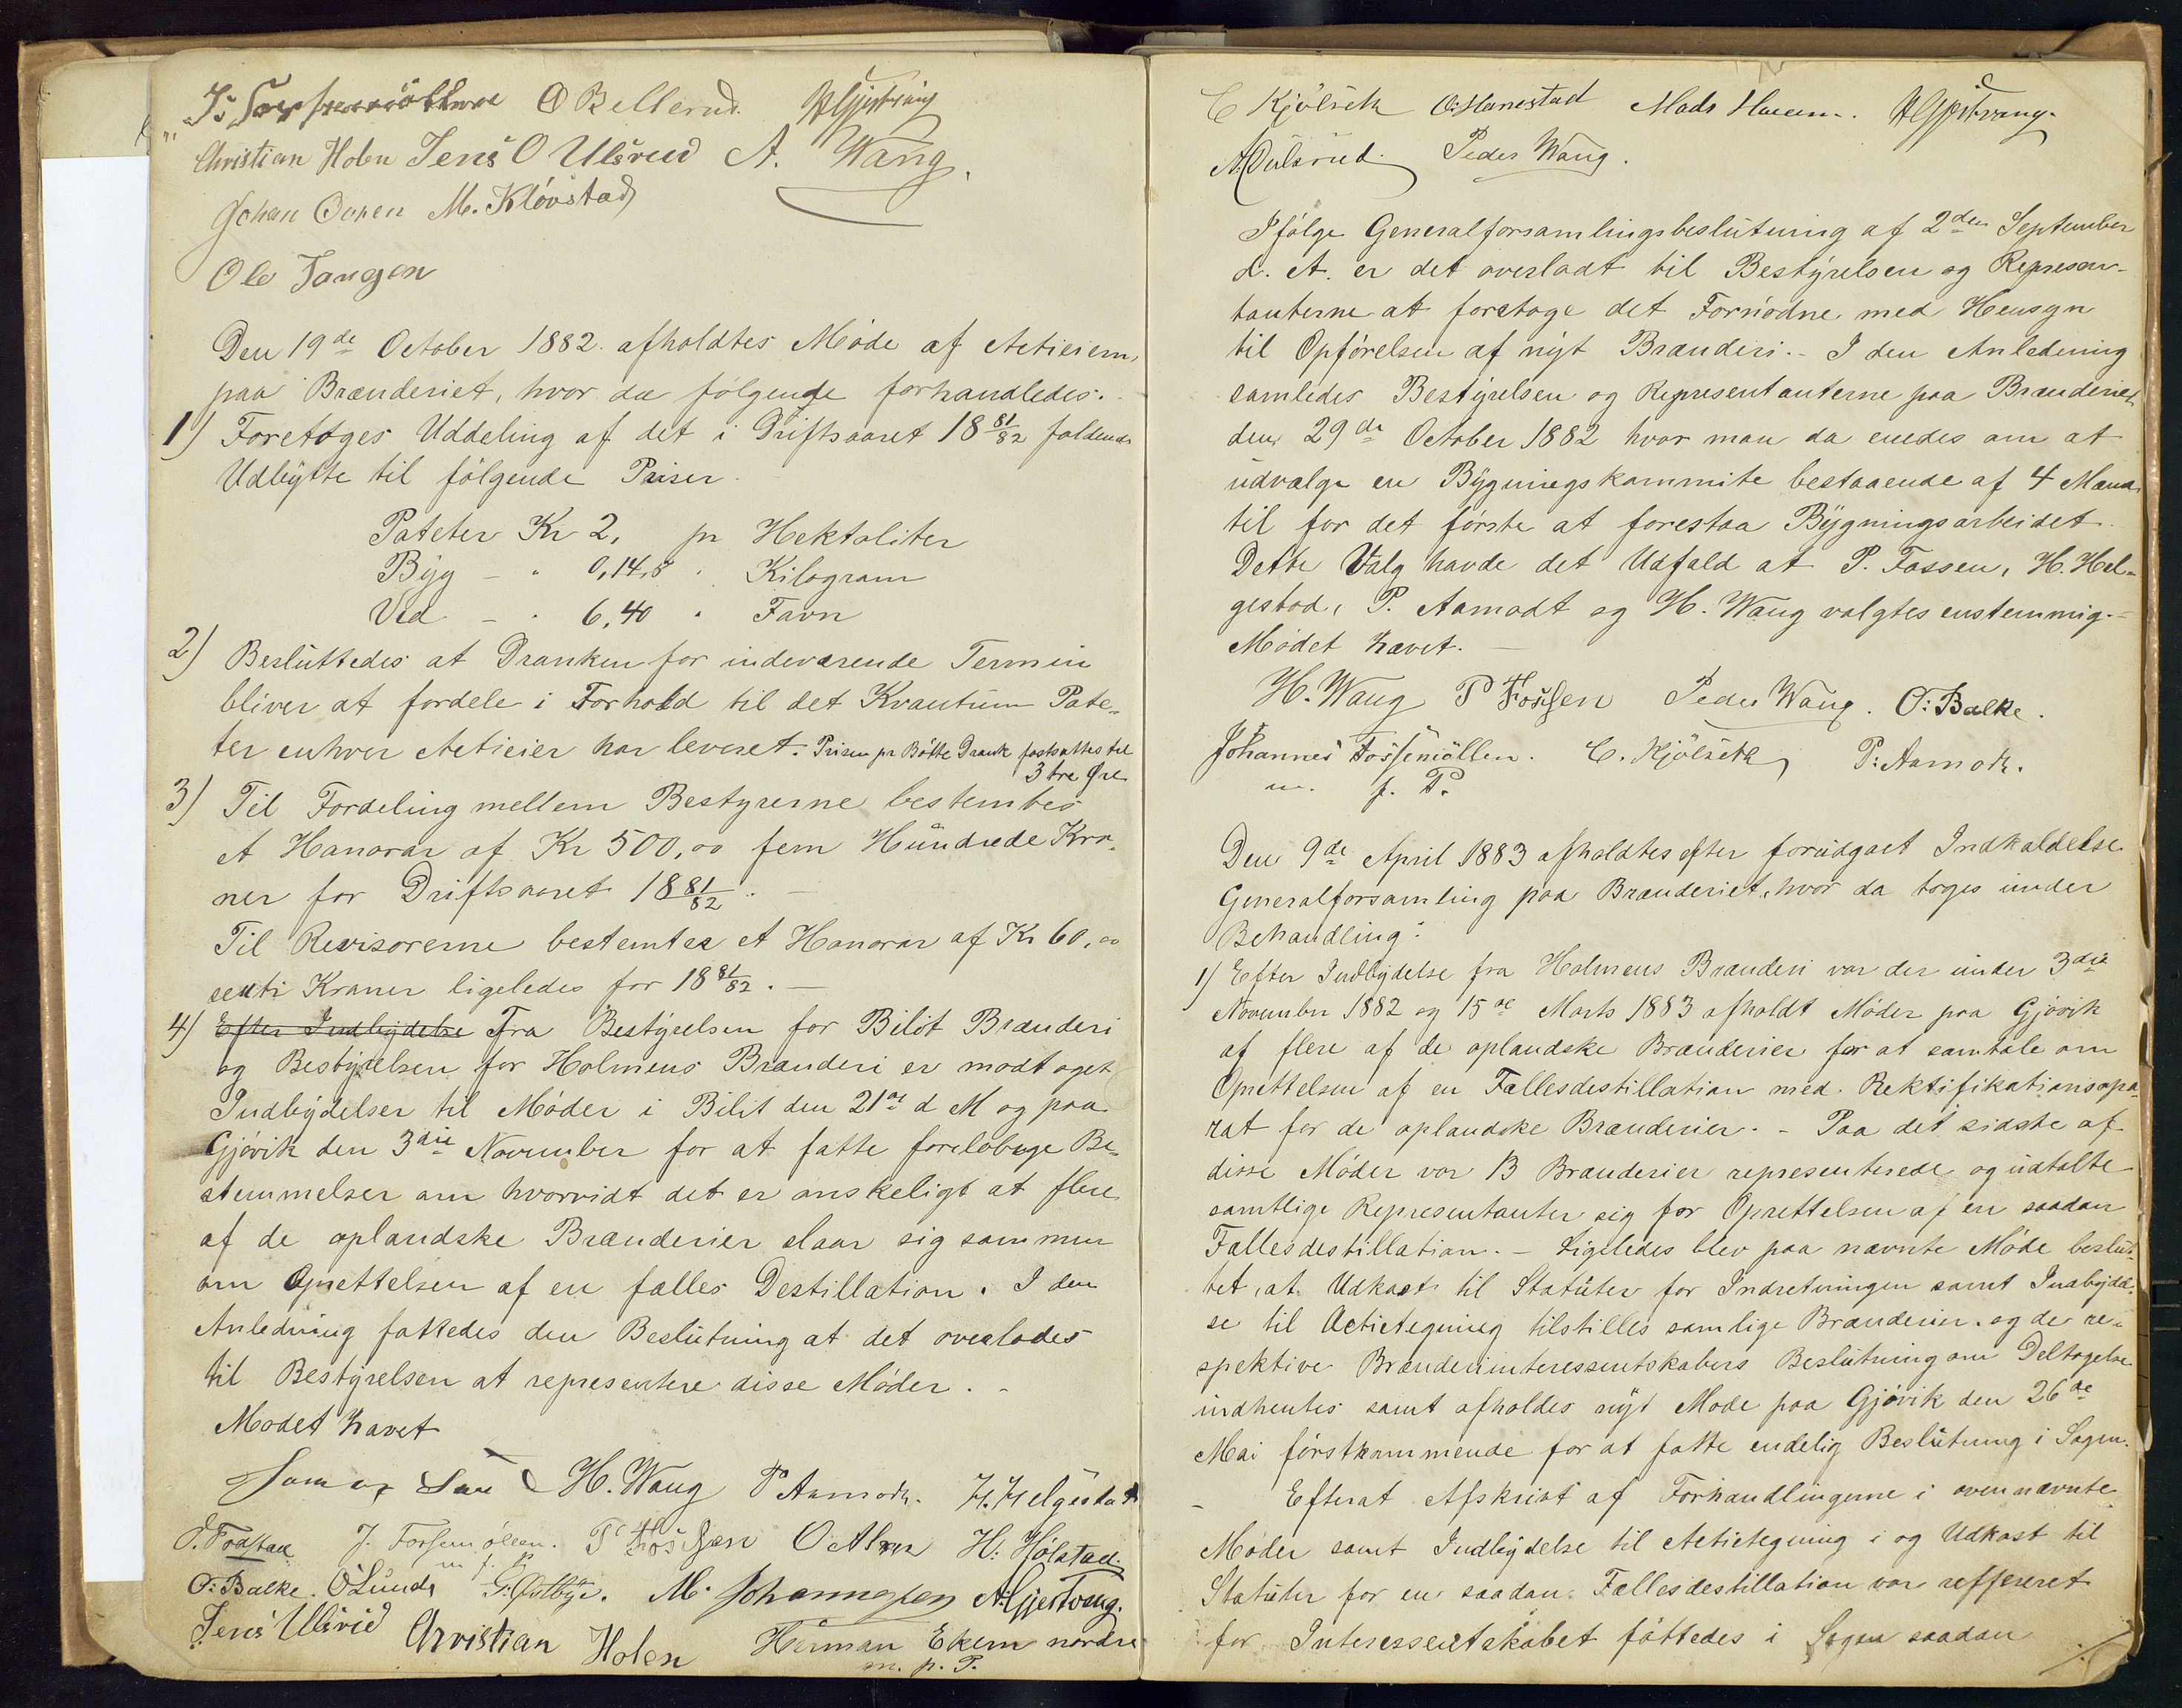 O Bellerud. AGjestvang
Christian Holen Jens O Ulsrud A. Wang.
Johan Ovren M. Kløvstad
Ole Tangen
Den 19de October 1882. afholdtes Møde af Actieiern,
paa Brænderiet, hvor da følgende forhandledes.
1) Foretoges Uddeling af det i Driftsaaret 18 81/82 faldende
Udbytte til følgende Priser.
Poteter Kr 2, pr Hektoliter
Byg - " 0,14,8 " Kilogram
Ved - " 6,40 " Favn
2) Besluttedes at Dranken for indeværende Termin
bliver at fordele i Forhold til det Kvantum Pote-
ter enhver Actieier har leveret. Prisen pr Bøtte Drank fastsattes til
3 tre Øre
3) Til Fordeling mellem Bestyrerne bestemtes
et Honorar af Kr 500,00 fem Hundrede Kro-
ner for Driftsaaret 18 81/82. -
Til Revisorerne bestemtes et Honorar af Kr 60,00
sexti Kroner ligeledes for 18 81/82. -
4) Efter Indbydelse Fra Bestyrelsen for Bilit Brænderi
og Bestyrelsen for Holmens Brænderi er modtaget
Indbydelser til Møder i Bilit den 21de d M og paa
Gjøvik den 3die November for at fatte foreløbige Be-
stemmelser om hvorvidt det er ønskeligt at flere
af de oplandske Brænderier slaar sig sammen
om Oprettelsen af en fælles Destillation. I den
Anledning fattedes den Beslutning at det overlodes
til Bestyrelsen at representere disse Møder. -
Mødet hævet
H. Wang P Aamodt. H. Helgestad
J. Fossemøllen. P Fossen O Alm H. Hølstad.
m f P
O. Balke. O Lund P. Østbye. M. Johannessen A.Gjestvang.
Jens Ulsrud Christian Holen Herman Ekern nordre
m. p. P.
C Kjølseth O. Hanestad Mads Hauen. AGjestvang.
A Oulsrud. Peder Wang.
Ifølge Generalforsamlingsbeslutning af 2den September
d. A. er det overladt til Bestyrelsen og Represen-
tanterne at foretage det Fornødne med Hensyn
til Opførelsen af nyt Brænderi. - I den Anledning
samledes Bestyrelsen og Representanterne paa Brænderiet
den 29de October 1882 hvor man da enedes om at
udvælge en Bygningskommite bestaaende af 4 Mænd
til for det første at forestaa Bygningsarbeidet.
Dette Valg havde det Udfald at P. Fossen, H. Hel-
gestad, P. Aamodt og H. Wang valgtes enstemmig. -
Mødet hævet. -
H. Wang P Fossen Peder Wang. O. Balke.
Johannes Fossemøllen. C. Kjølseth P. Aamodt.
m. f. P.
Den 9de April 1883 afholdtes efter forudgaaet Indkaldelse
Generalforsamling paa Brænderiet, hvor da toges under
Behandling:
1) Efter Indbydelse fra Holmens Brænderi var der under 3die
November 1882 og 15de Marts 1883 afholdt Møder paa Gjøvik
af flere af de oplandske Brænderier for at samtale om
Oprettelsen af en Fællesdestillation med Rektifikationsapa-
rat for de oplandske Brænderier. - Paa det sidste af
disse Møder var 13 Brænderier representerede og udtalte
samtlige Representanter sig for Oprettelsen af en saadan
Fællesdestillation. - Ligeledes blev paa nævnte Møde beslut-
tet, at Udkast til Statuter for Indretningen samt Indbydel-
se til Actietegning tilstilles samlige Brænderier, og de re-
spektive Brænderiinteressentskabers Beslutning om Deltagelse
indhentes samt afholdes nyt Møde paa Gjøvik den 26de
Mai førstkommende for at fatte endelig Beslutning i Sagen.
- Efterat Afskrift af Forhandlingerne i ovennævnte
Møder samt Indbydelse til Actietegning i og Udkast til
Statuter for en saadan Fællesdestillation var refereret
for Interessentskabet fattedes i Sagen saadan